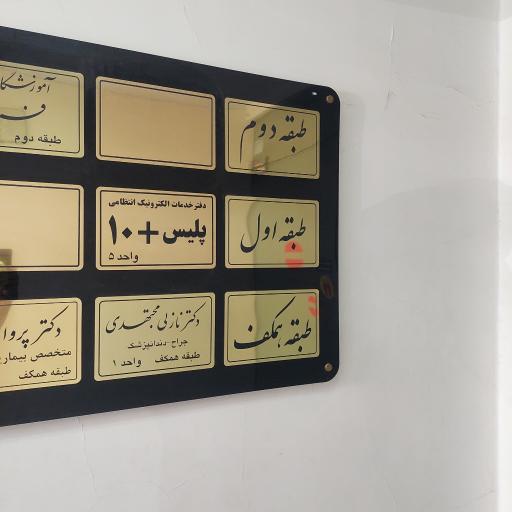 طبقه دوم
آموزشگا
طبقه دوم
طبقه اول
دفتر خدمات الکترونیک انتظامی
پلیس +۱۰
واحد ۵
طبقه همکف
دکتر نازلی مجتهدی
جراح - دندانپزشک
طبقه همکف واحد ۱
دکتر پروا
متخصص بیماری
طبقه همکف